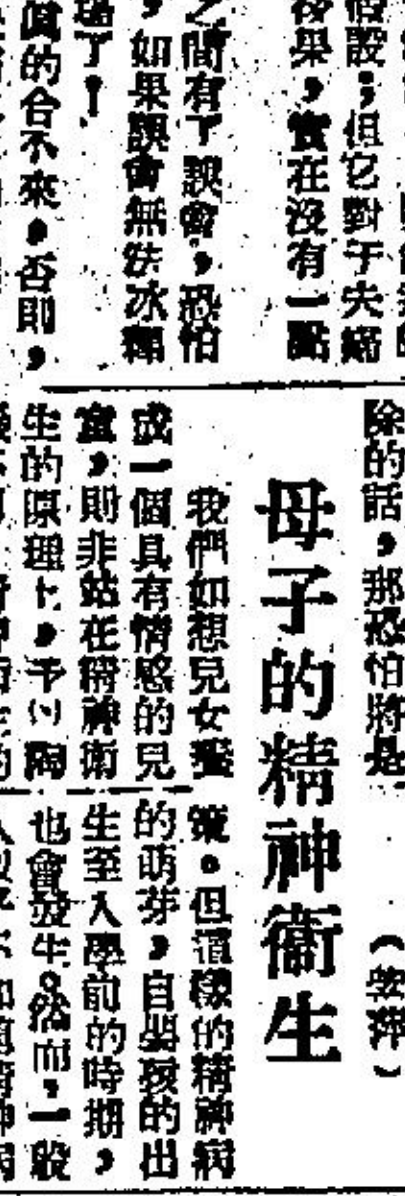 假設；但它對于夫婦
後果，實在沒有一點
之間有了誤會，恐怕
，如果誤會無法冰釋
了！
真的合不來，否則，
除的話，那恐怕將是
（ 萍）
母子的精神衛生
我們如想兒女養
成一個具有情感的兒
童，則非站在精神衛
生的原理上，予以陶
策。但這樣的精神病
的萌芽，自嬰孩的出
生至入學前的時期，
也會發生。然而，一般